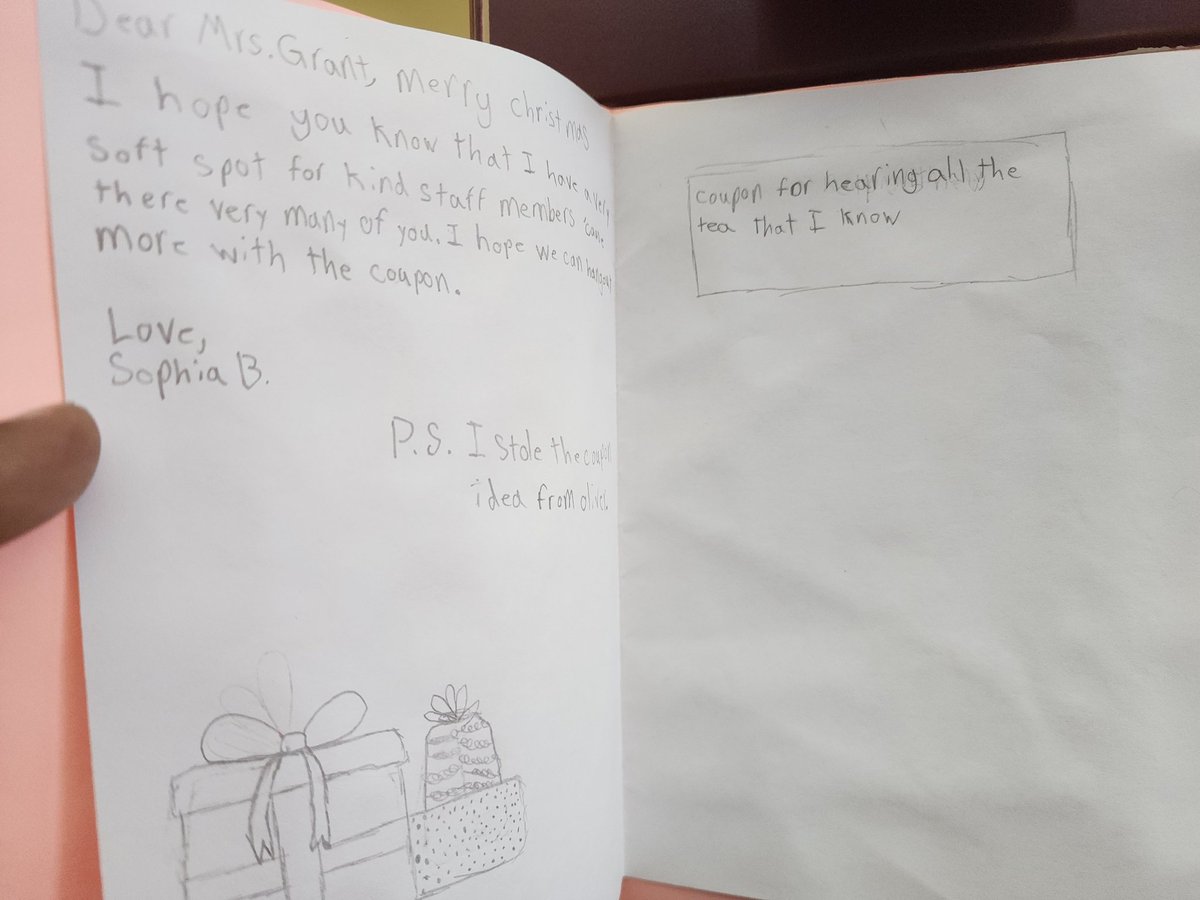 Dear Mrs. Grant, Merry Christmas
I hope you know that I have a very
soft spot for kind staff members 'cause
there very many of you. I hope we can hangout
more with the coupon.
Love,
Sophia B.
P.S. I stole the coupon
idea from
coupon for hearing all the
tea that I know